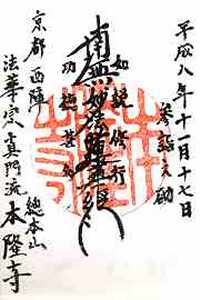 平成八年十一月十七日
参詣之砌
如説修行
南無妙法蓮華経
功徳甚多
京都西陣
法華宗真門流 總本山
本隆寺